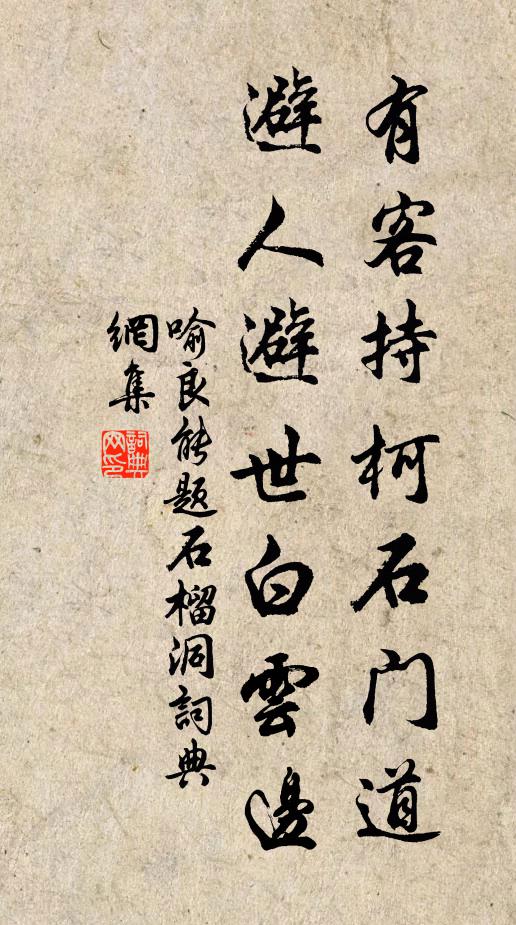 有客持柯石门道
避人避世白雲邊
喻良能题石榴洞詞典
網集
詞典網印